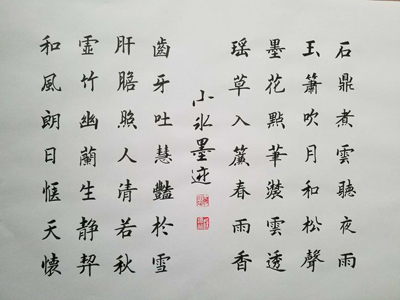 石鼎煮雲聽夜雨
玉簫吹月和松聲
墨花點華雲透
瑤草入簾春雨香
小冰墨迹
齒牙吐慧豔於雪
肝膽照人清若秋
靈竹幽蘭生靜契
和風朗日愜天懷